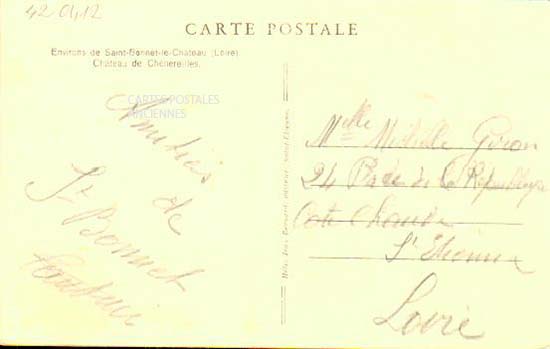 42 0412
CARTE POSTALE
Environs de Saint-Bonnet-le-Château (Loire)
Château de Chenereilles.
CARTES POSTALES
ANCIENNES
Amitiés
de
St Bonnet
Melle Michelle Giron
24 de la République
Cote Chaude
St Etienne
Loire